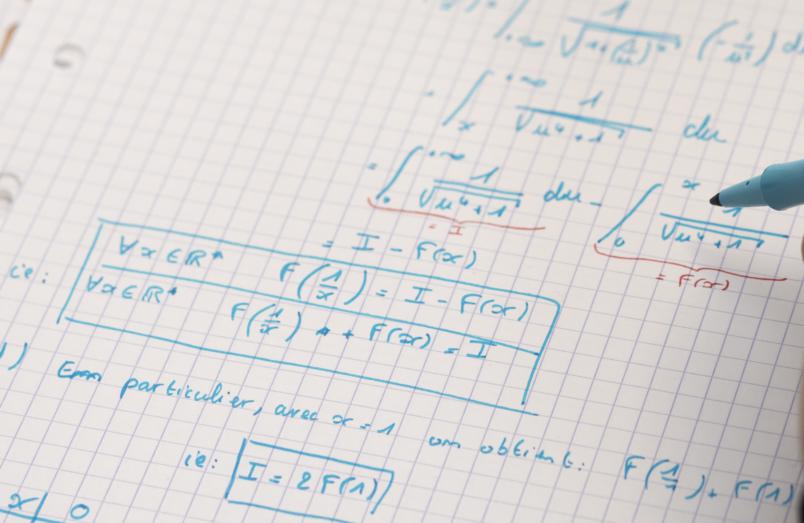 ∫ 1/√(1+(1/u)⁴) (-1/u²) du
= ∫ₓ^{+∞} 1/√(u⁴+1) du
= ∫₀^{+∞} 1/√(u⁴+1) du - ∫₀ˣ 1/√(u⁴+1)
= I
= F(x)
= I - F(x)
ie: ∀x∈ℝ* F(1/x) = I - F(x)
∀x∈ℝ* F(1/x) + F(x) = I
1) En particulier, avec x = 1 on obtient: F(1/1) + F(1)
ie: I = 2F(1)
x | 0